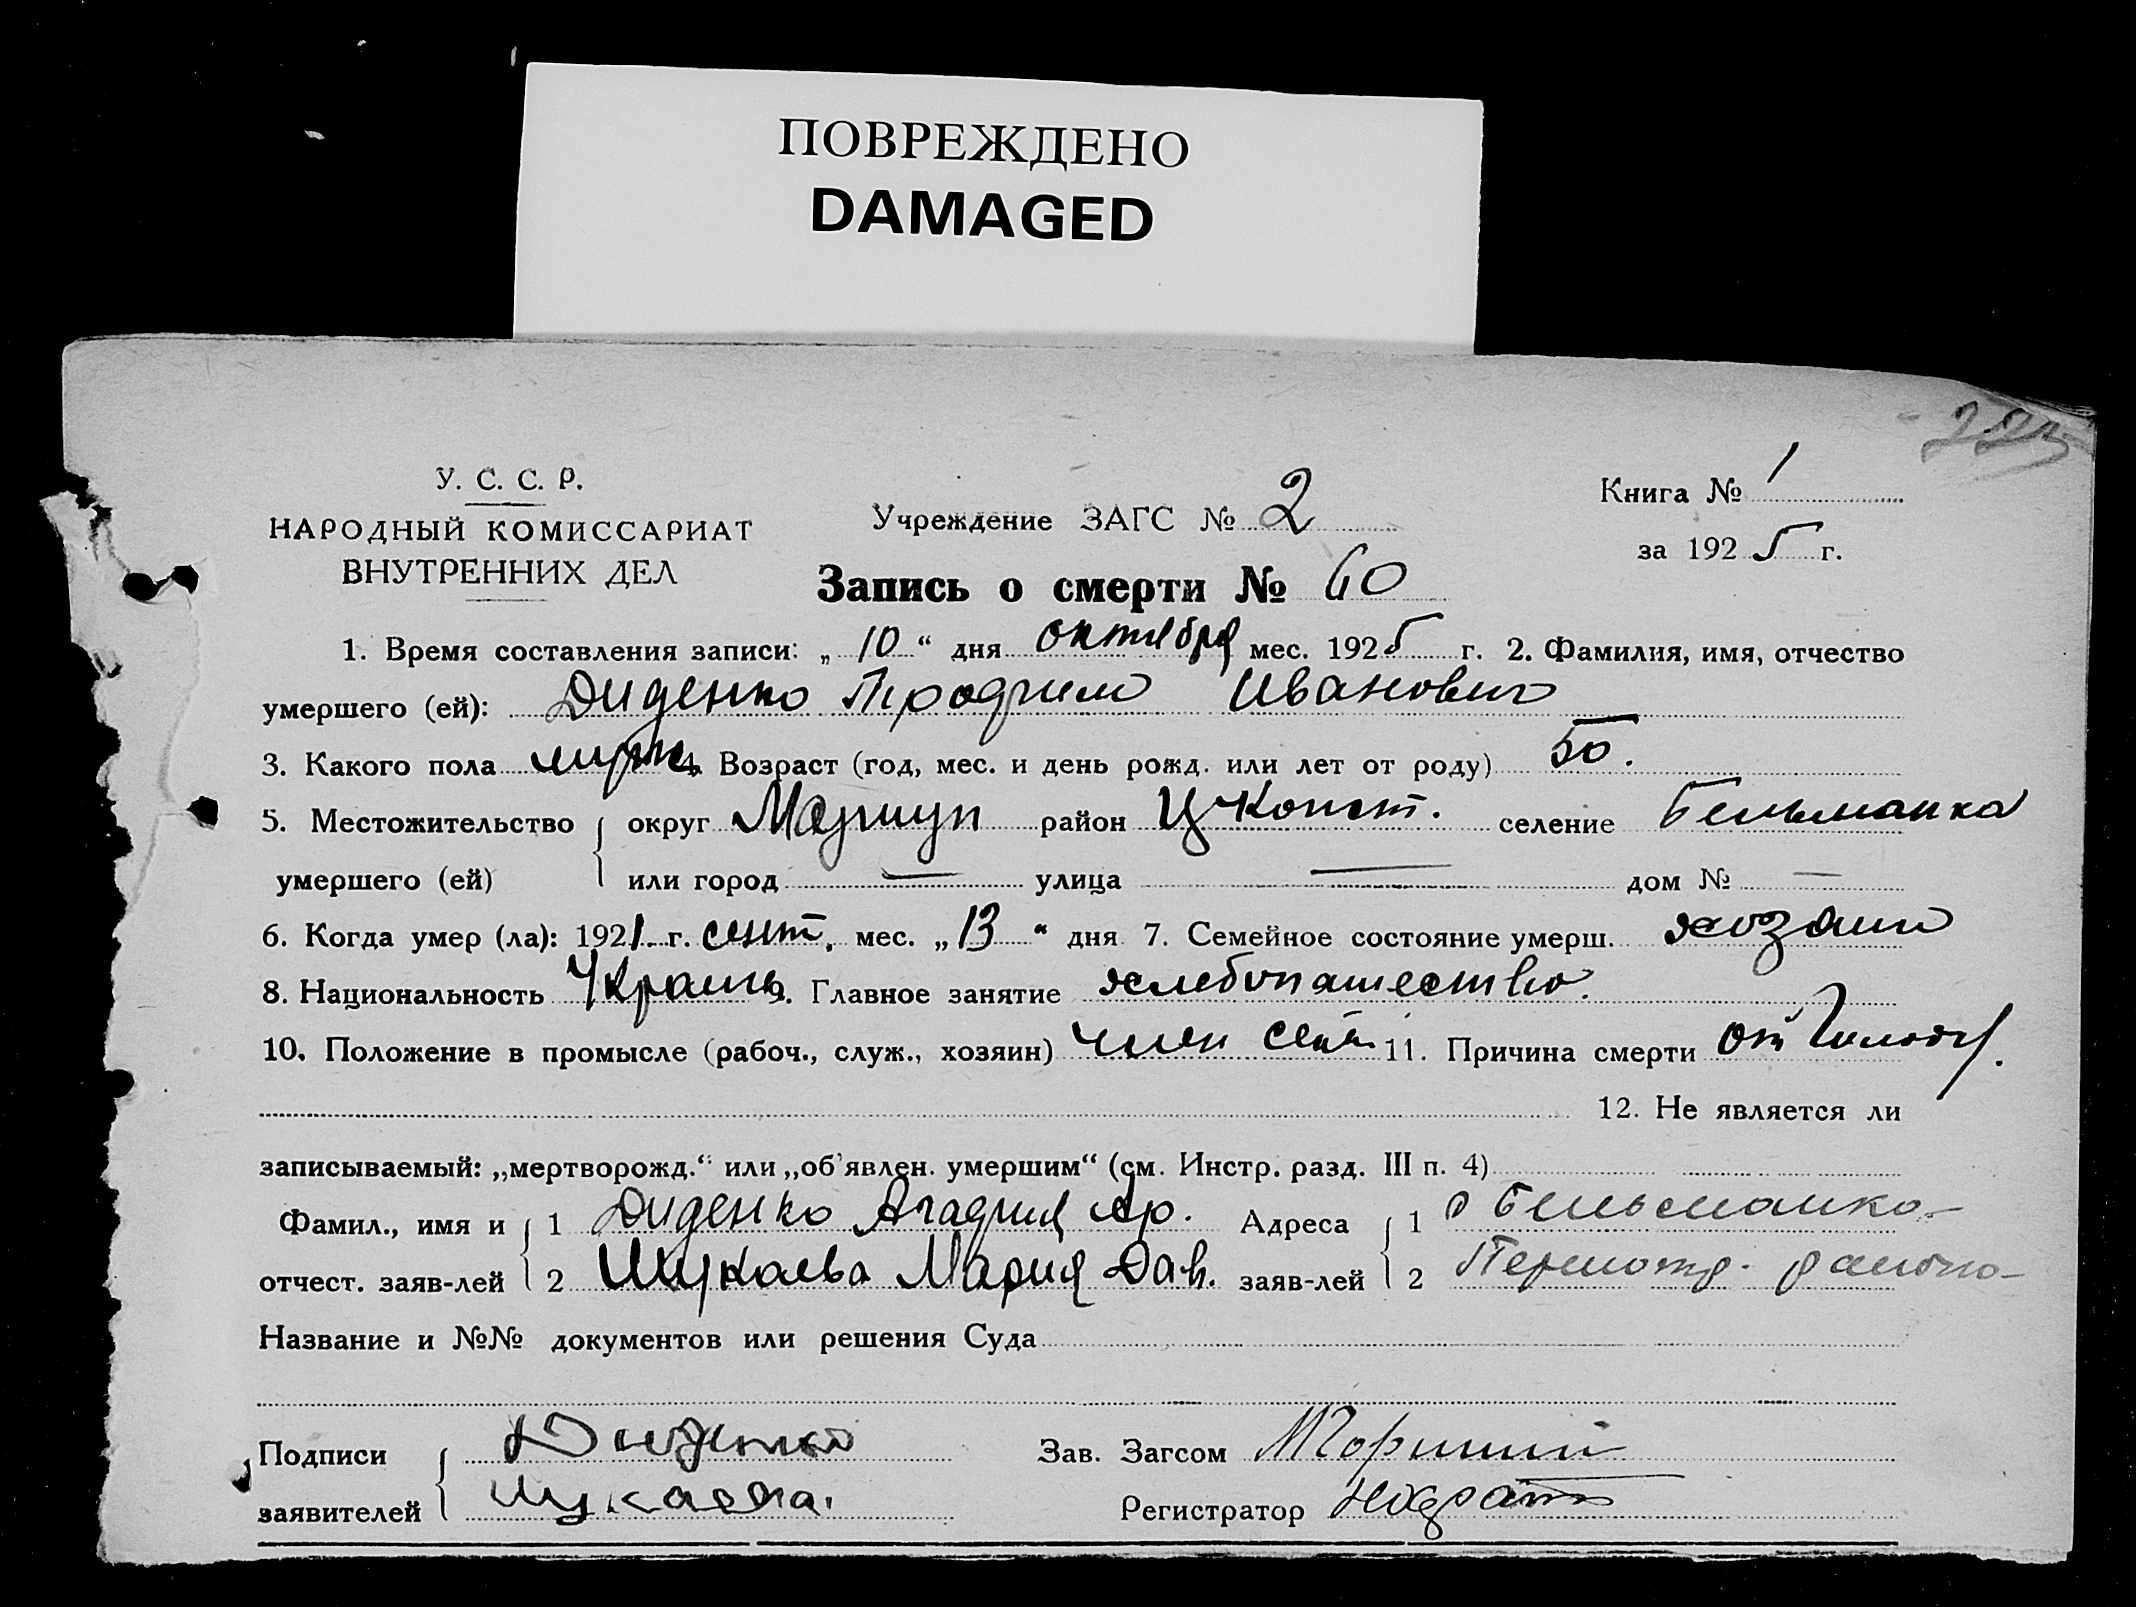 ПОВРЕЖДЕНО
DAMAGED
225
У. С. С. Р.
НАРОДНЫЙ КОМИССАРИАТ
ВНУТРЕННИХ ДЕЛ
Учреждение ЗАГС № 2
Книга № 1
за 1925 г.
Запись о смерти № 60
1. Время составления записи: „ 10 “ дня октября мес. 1925 г. 2. Фамилия, имя, отчество
умершего (ей): Диденко Иванович
3. Какого пола мужц. Возраст (год, мес. и день рожд. или лет от роду) 50.
5. Местожительство округ Мариуп район ЦКонст. селение Бельманка
умершего (ей) или город — улица — дом № —
6. Когда умер (ла): 1921 г. сент. мес. „ 13 “ дня 7. Семейное состояние умерш. хозяин
8. Национальность Украинц. Главное занятие хлебопашество.
10. Положение в промысле (рабоч., служ., хозяин) член 11. Причина смерти от голоду.
12. Не является ли
записываемый: „мертворожд.“ или „об'явлен. умершим“ (см. Инстр. разд. III п. 4)
Фамил., имя и 1 Диденко Адреса 1 Бельманка
отчест. заяв-лей 2 Шукаева Мария Дав. заяв-лей 2
Название и №№ документов или решения Суда
Подписи Диденко Зав. Загсом
заявителей Шукаева. Регистратор